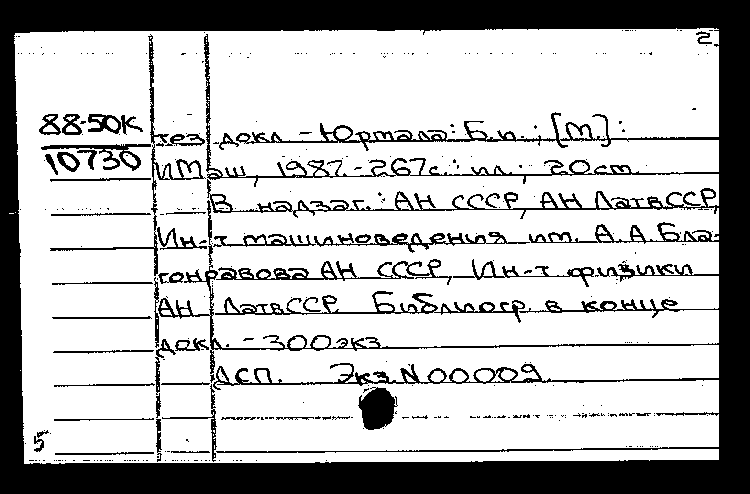 2.
88-50К
10730
тез докл. - Юрмала: Б.и.; [М.]:
ИМаш, 1987. - 267с.: ил.; 20 см.
В надзаг.: АН СССР, АН ЛатвССР,
Ин-т машиноведения им. А. А. Бла-
гонравова АН СССР, Ин-т физики
АН ЛатвССР. Библиогр. в конце
докл. - 300 экз.
ДСП. Экз. N 00009.
5